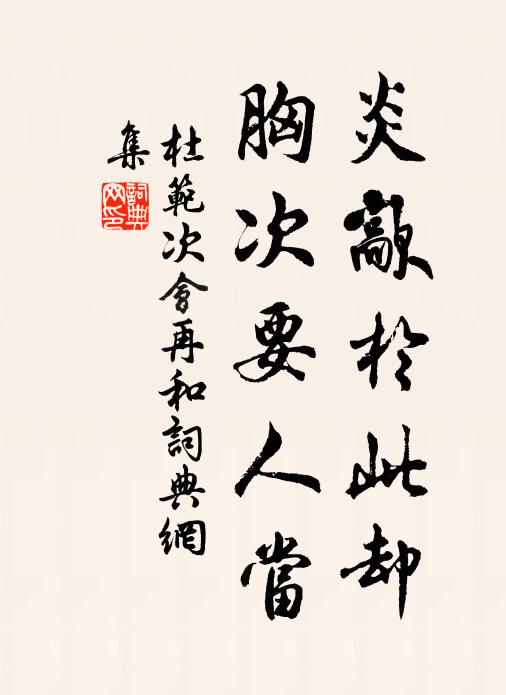 炎敲於此却
胸次要人當
杜範次會再和詞典網
集
詞典
网印